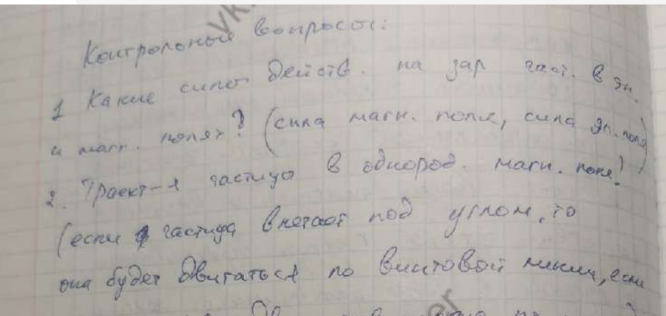 Контрольные вопросы:
1 Какие силы действ. на зар част. в эл.
и магн. полях? (сила магн. поля, сила эл. поля)
2. Траект-я частицы в однород. магн. поле?
(если частица влетает под углом, то
она будет двигаться по винтовой линии, если